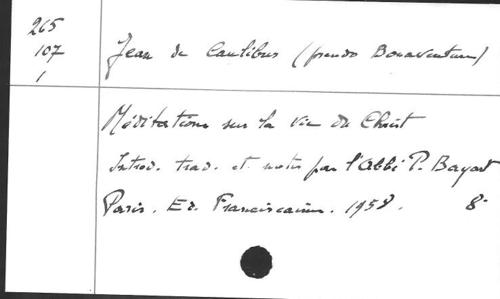 265
107
1
Jean de Caulibus (pseudo Bonaventure)
Méditations sur la vie du Christ
Introd. trad. et notes par l'Abbé P. Bayart
Paris. Ed. Franciscaines. 1958. 8°